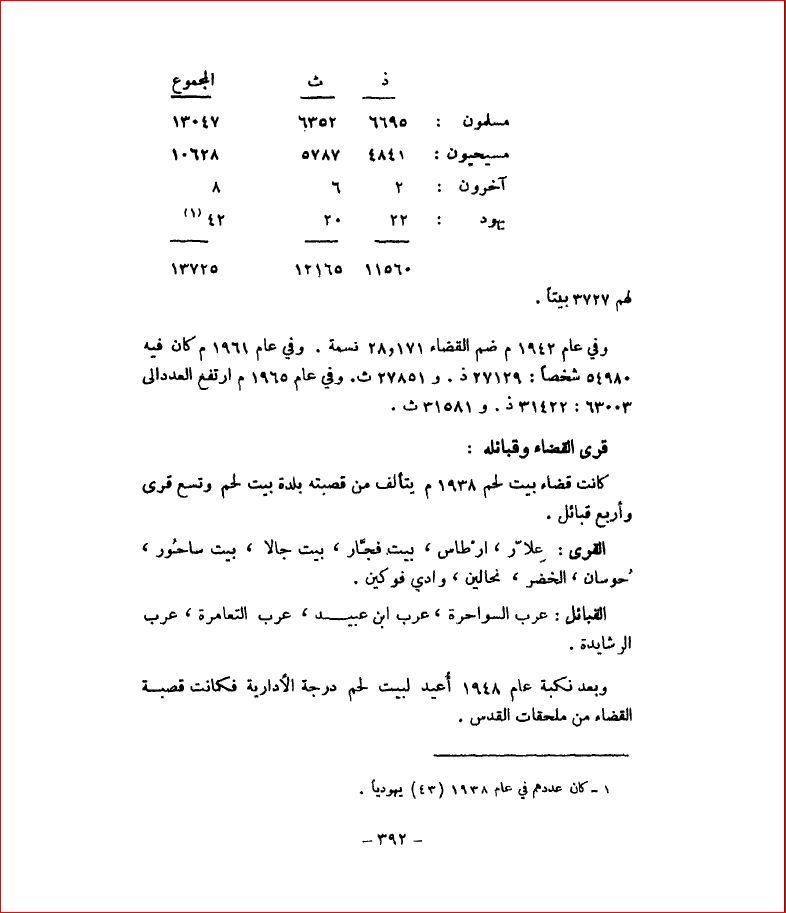 ذ ث المجموع
مسلمون : ٦٦٩٥ ٦٣٥٢ ١٣٠٤٧
مسيحيون : ٤٨٤١ ٥٧٨٧ ١٠٦٢٨
آخرون : ٢ ٦ ٨
يهود : ٢٢ ٢٠ ٤٢ (١)
١١٥٦٠ ١٢١٦٥ ١٣٧٢٥
لهم ٣٧٢٧ بيتاً .
وفي عام ١٩٤٢ م ضم القضاء ٢٨,١٧١ نسمة . وفي عام ١٩٦١ م كان فيه
٥٤٩٨٠ شخصاً : ٢٧١٢٩ ذ . و ٢٧٨٥١ ث. وفي عام ١٩٦٥ م ارتفع العددالى
٦٣٠٠٣ : ٣١٤٢٢ ذ . و ٣١٥٨١ ث .
قرى القضاء وقبائله :
كانت قضاء بيت لحم ١٩٣٨ م يتألف من قصبته بلدة بيت لحم وتسع قرى
وأربع قبائل .
القرى : عِلاّر ، ارْطاس ، بيت فجَّار ، بيت جالا ، بيت ساحُور ،
حُوسان ، الخضْر ، نحالين ، وادي فوكين .
القبائل : عرب السواحرة ، عرب ابن عبيــد ، عرب التعامرة ، عرب
الرشايدة .
وبعد نكبة عام ١٩٤٨ أُعيد لبيت لحم درجة الأدارية فكانت قصبـة
القضاء من ملحقات القدس .
١ ـ كان عددهم في عام ١٩٣٨ (٤٣) يهودياً .
– ٣٩٢ –